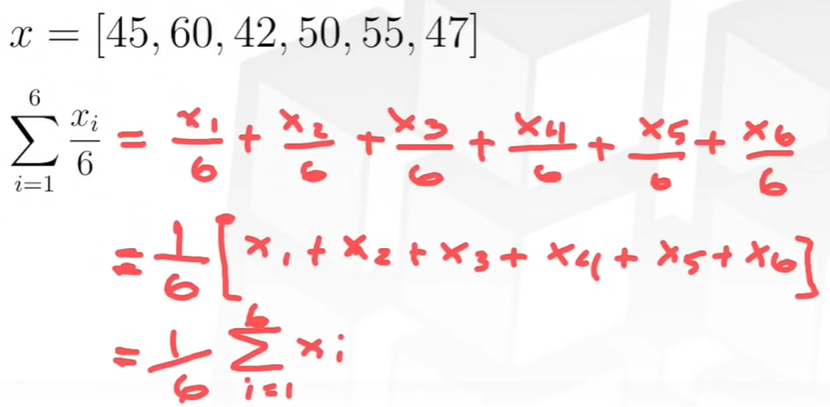 x = [45, 60, 42, 50, 55, 47]
∑_{i=1}^{6} x_i/6 = x_1/6 + x_2/6 + x_3/6 + x_4/6 + x_5/6 + x_6/6
= 1/6 [x_1 + x_2 + x_3 + x_4 + x_5 + x_6]
= 1/6 ∑_{i=1}^{6} x_i